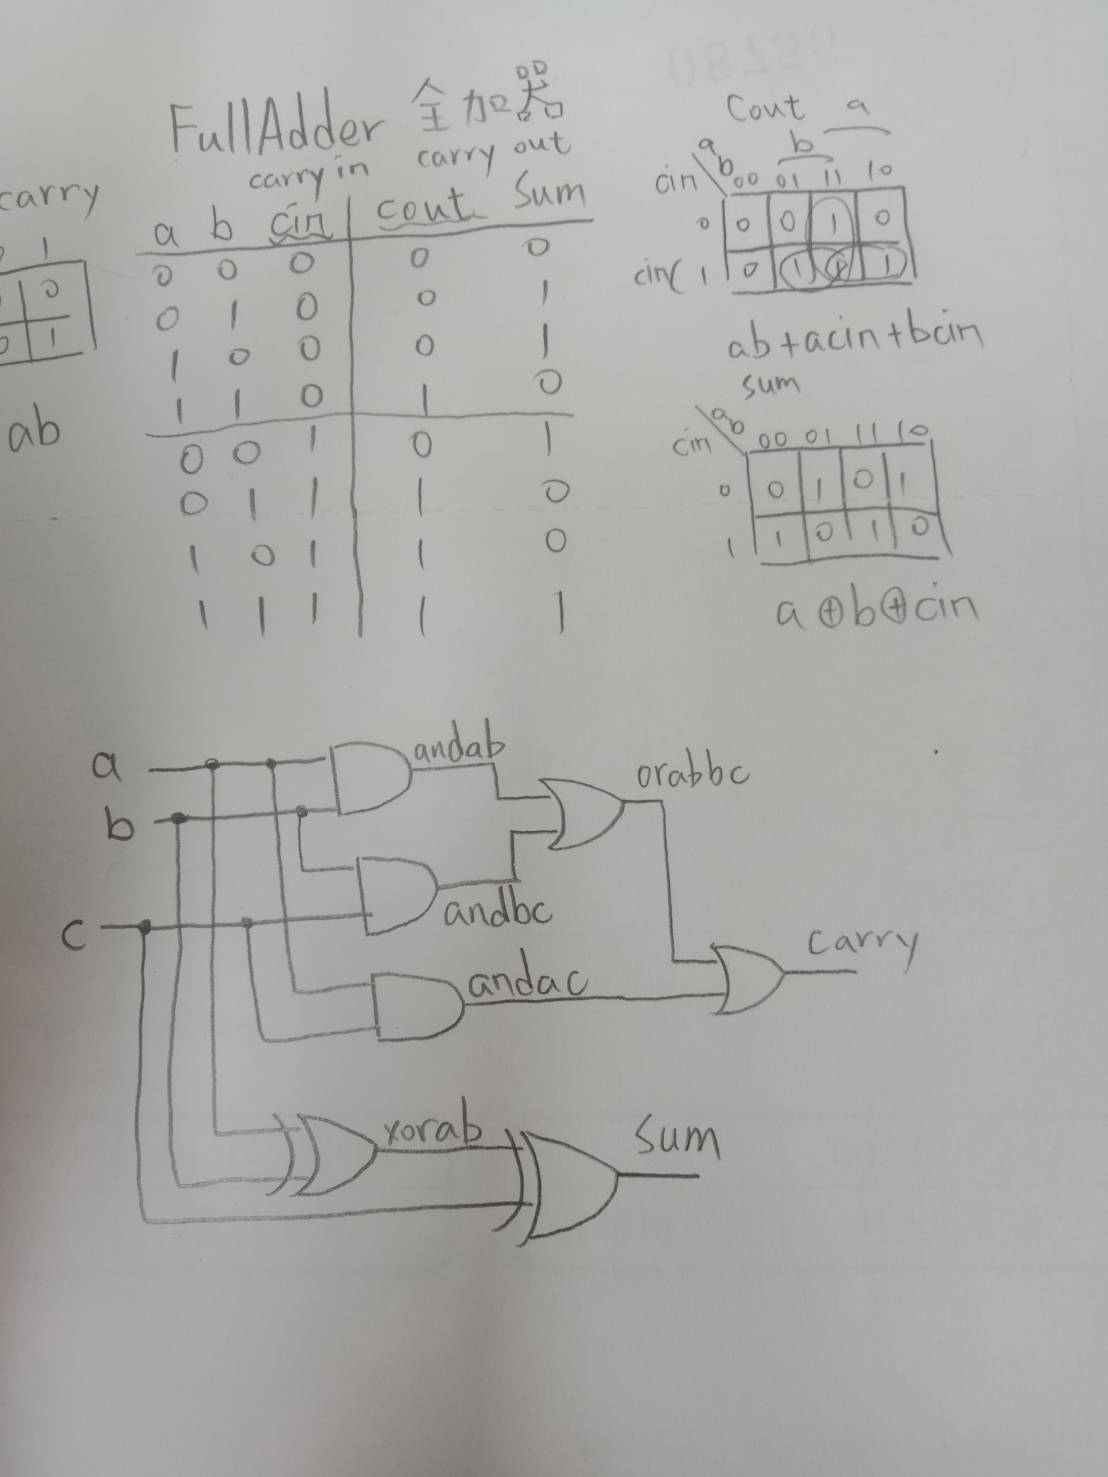 FullAdder 全加器
carry in carry out
a b cin cout Sum
0 0 0 0 0
0 1 0 0 1
1 0 0 0 1
1 1 0 1 0
0 0 1 0 1
0 1 1 1 0
1 0 1 1 0
1 1 1 1 1
carry
1
0
0 1
ab
Cout a
b
a
cin b 00 01 11 10
0 0 0 1 0
cin 1 0 1 1 1
ab+acin+bcin
sum
a
cin b 00 01 11 10
0 0 1 0 1
1 1 0 1 0
a⊕b⊕cin
a andab orabbc
b
c andbc
carry
andac
xorab Sum